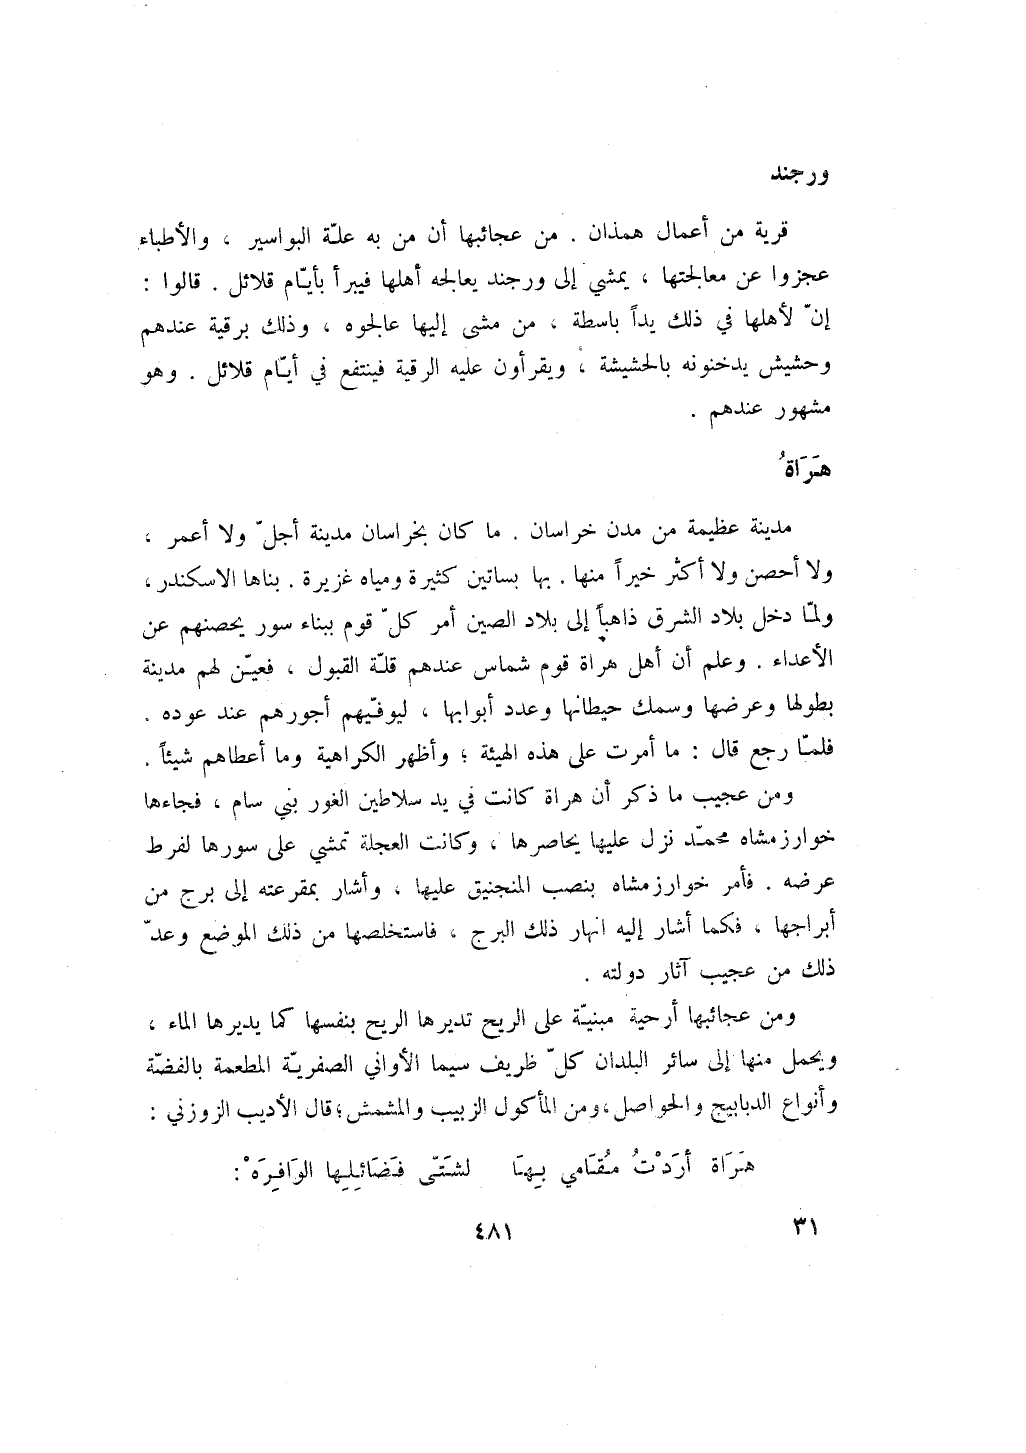 ورجند
قرية من أعمال همذان . من عجائبها أن من به علّة البواسير ، والأطباء
عجزوا عن معالجتها ، يمشي إلى ورجند يعالجه أهلها فيبرأ بأيّام قلائل . قالوا :
إنّ لأهلها في ذلك يداً باسطة ، من مشى إليها عالجوه ، وذلك برقية عندهم
وحشيش يدخنونه بالحشيشة ، ويقرأون عليه الرقية فينتفع في أيّام قلائل . وهو
مشهور عندهم .
هَرَاةُ
مدينة عظيمة من مدن خراسان . ما كان بخراسان مدينة أجلّ ولا أعمر ،
ولا أحصن ولا أكثر خيراً منها . بها بساتين كثيرة ومياه غزيرة . بناها الاسكندر ،
ولمّا دخل بلاد الشرق ذاهباً إلى بلاد الصين أمر كلّ قوم ببناء سور يحصنهم عن
الأعداء . وعلم أن أهل هراة قوم شماس عندهم قلّة القبول ، فعيّن لهم مدينة
بطولها وعرضها وسمك حيطانها وعدد أبوابها ، ليوفّيهم أجورهم عند عوده .
فلمّا رجع قال : ما أمرت على هذه الهيئة ؛ وأظهر الكراهية وما أعطاهم شيئاً .
ومن عجيب ما ذكر أن هراة كانت في يد سلاطين الغور بني سام ، فجاءها
خوارزمشاه محمّد نزل عليها يحاصرها ، وكانت العجلة تمشي على سورها لفرط
عرضه . فأمر خوارزمشاه بنصب المنجنيق عليها ، وأشار بمقرعته إلى برج من
أبراجها ، فكما أشار إليه انهار ذلك البرج ، فاستخلصها من ذلك الموضع وعدّ
ذلك من عجيب آثار دولته .
ومن عجائبها أرحية مبنيّة على الريح تديرها الريح بنفسها كما يديرها الماء ،
ويحمل منها إلى سائر البلدان كلّ ظريف سيما الأواني الصفريّة المطعمة بالفضّة
وأنواع الدبابيج والحواصل ، ومن المأكول الزبيب والمشمش ؛ قال الأديب الزوزني :
هَرَاة أرَدْتُ مُقَامي بِهَا لشَتّى فَضَائِلِها الوَافِرَهْ :
٣١
٤٨١